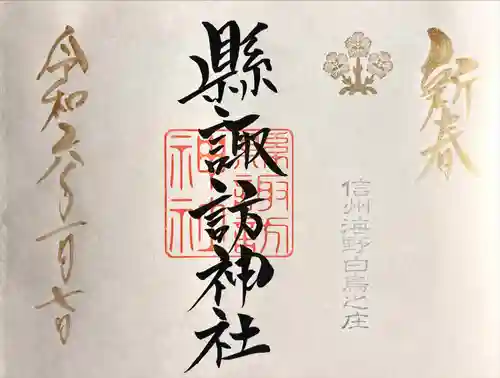 新春
信州海野白鳥之庄
縣諏訪神社
縣諏訪神社
令和六年一月七日